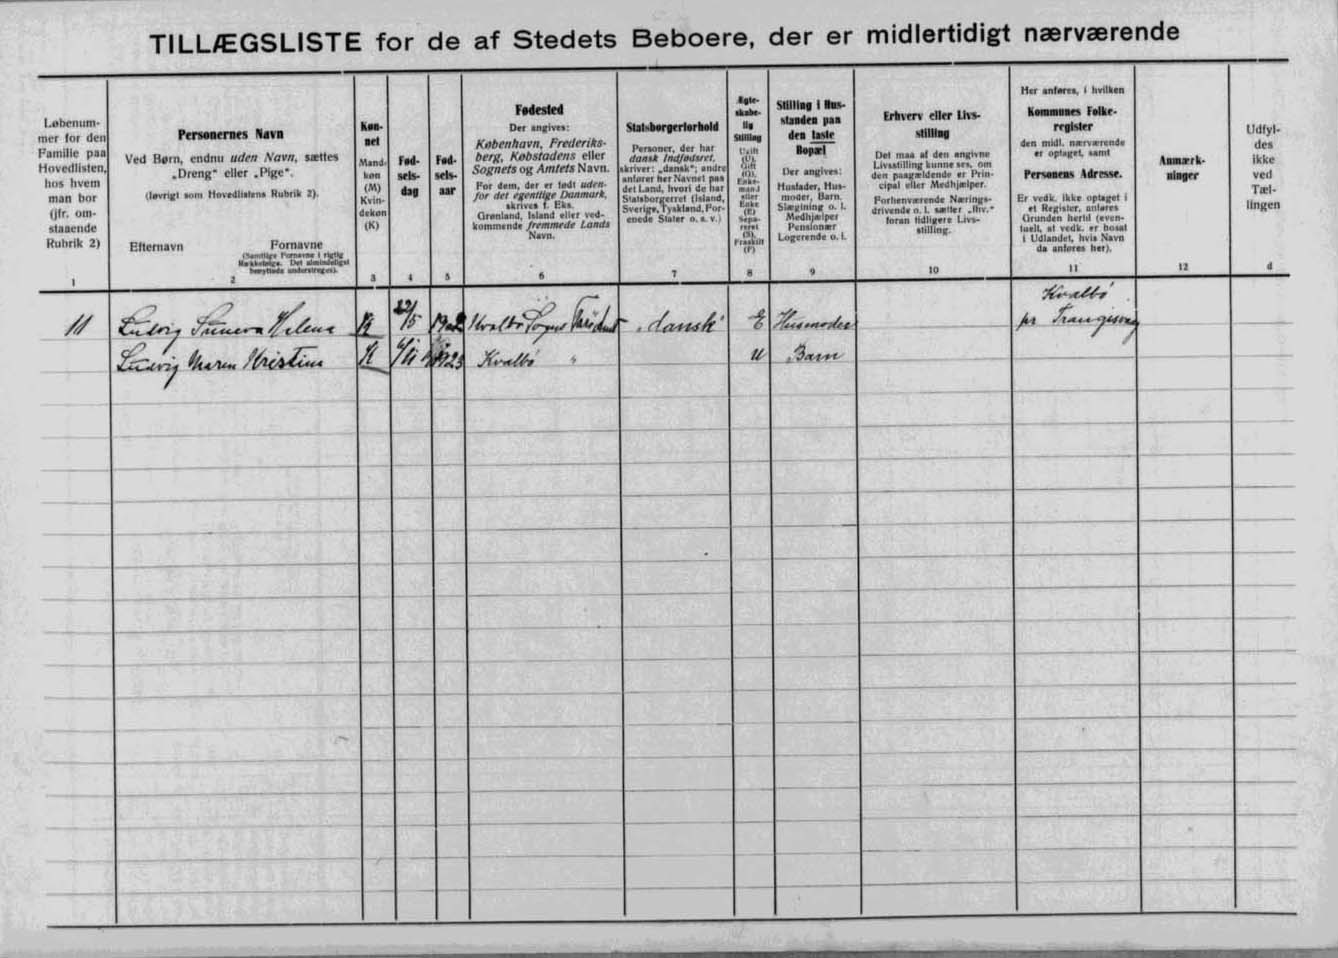 TILLÆGSLISTE for de af Stedets Beboere, der er midlertidigt nærværende
Løbenum-
mer for den
Familie paa
Hovedlisten,
hos hvem
man bor
(jfr. om-
staaende
Rubrik 2)
1
Personernes Navn
Ved Børn, endnu uden Navn, sættes
„Dreng“ eller „Pige“.
(Iøvrigt som Hovedlistens Rubrik 2).
Efternavn
Fornavne
(Samtlige Fornavne i rigtig
Rækkefølge. Det almindeligst
benyttede understreges).
2
Køn-
net
Mand-
køn
(M)
Kvin-
dekøn
(K)
3
Fød-
sels-
dag
4
Fød-
sels-
aar
5
Fødested
Der angives:
København, Frederiks-
berg, Købstadens eller
Sognets og Amtets Navn.
For dem, der er født uden-
for det egentlige Danmark,
skrives f. Eks.
Grønland, Island eller ved-
kommende fremmede Lands
Navn.
6
Statsborgerforhold
Personer, der har
dansk Indfødsret,
skriver: „dansk“; andre
anfører her Navnet paa
det Land, hvori de har
Statsborgerret (Island,
Sverige, Tyskland, For-
enede Stater o. s. v.)
7
Ægte-
skabe-
lig
Stilling
Ugift
(U),
Gift
(G),
Enke-
mand
eller
Enke
(E)
Sepa-
reret
(S),
Fraskilt
(F)
8
Stilling i Hus-
standen paa
den faste
Bopæl
Der angives:
Husfader, Hus-
moder, Barn,
Slægtning o. l.
Medhjælper
Pensionær
Logerende o. l.
9
Erhverv eller Livs-
stilling
Det maa af den angivne
Livsstilling kunne ses, om
den paagældende er Prin-
cipal eller Medhjælper.
Forhenværende Nærings-
drivende o. l. sætter „fhv.“
foran tidligere Livs-
stilling.
10
Her anføres, i hvilken
Kommunes Folke-
register
den midl. nærværende
er optaget, samt
Personens Adresse.
Er vedk. ikke optaget i
et Register, anføres
Grunden hertil (even-
tuelt, at vedk. er bosat
i Udlandet, hvis Navn
da anføres her).
11
Anmærk-
ninger
12
Udfyl-
des
ikke
ved
Tæl-
lingen
d
Kvalbø
11 Ludvig Sunneva Helena K 22/5 Kvalbø Sogns „dansk“ E Husmoder pr Trangisvaag
Ludvig Maren Kristina K 1923 Kvalbø " U Barn